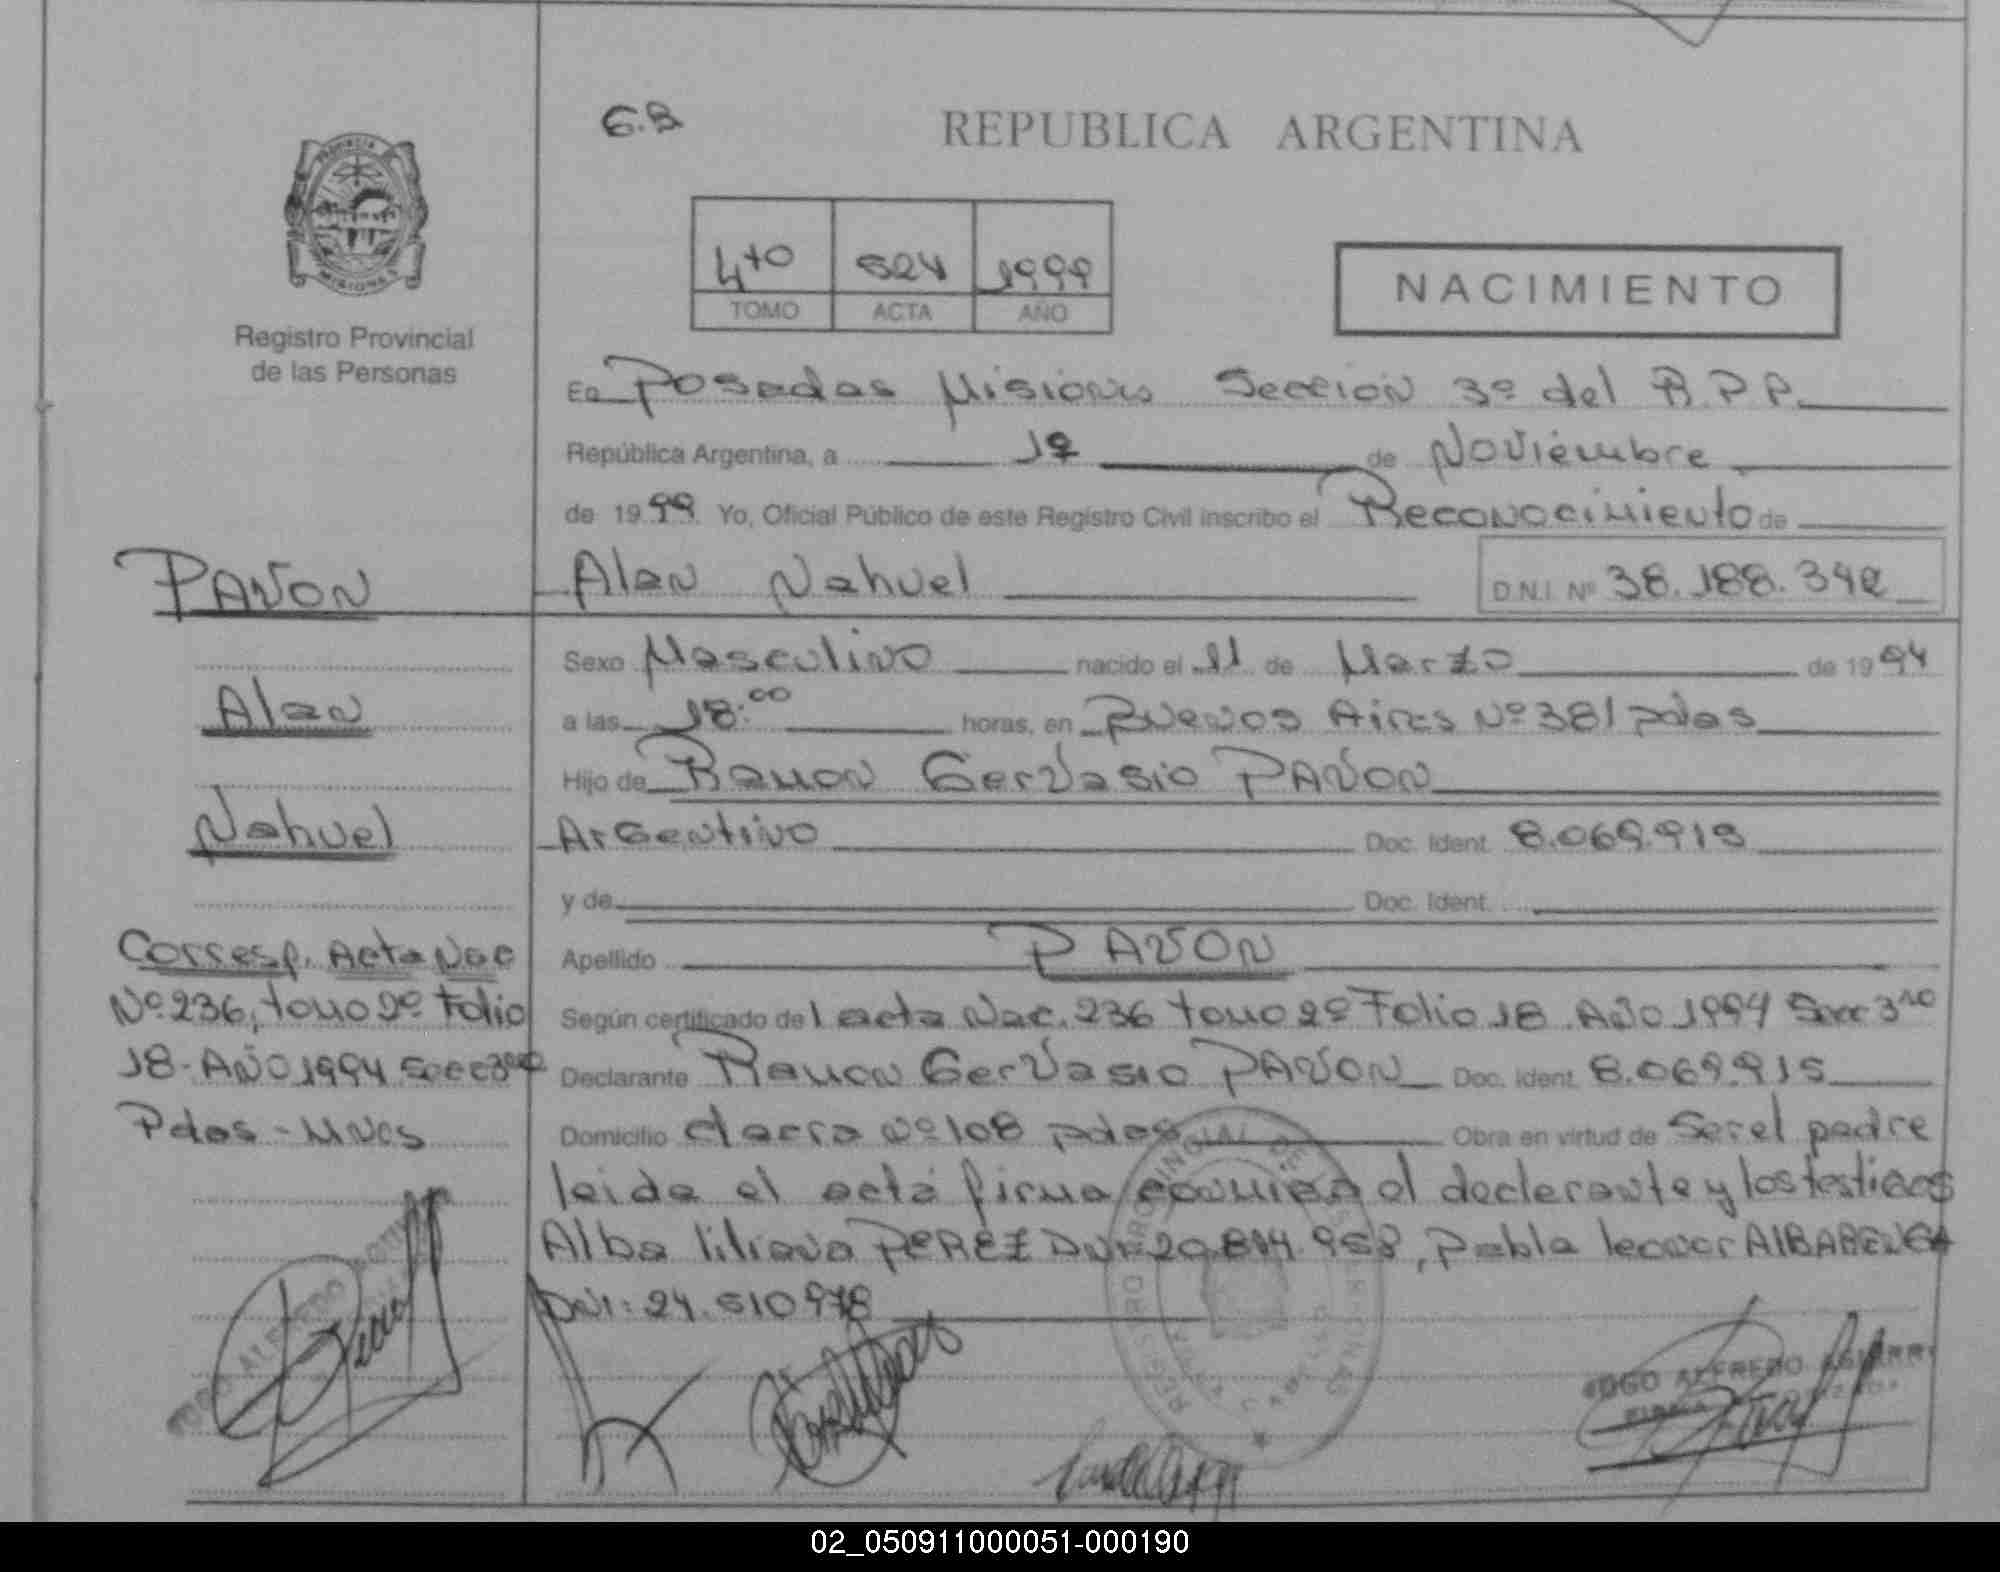 G.B
REPUBLICA ARGENTINA
PROVINCIA
MISIONES
Registro Provincial
de las Personas
4to 524 1999
TOMO ACTA AÑO
NACIMIENTO
En Posadas Misiones Sección 3º del R.P.P.
República Argentina, a de Noviembre
de 1999 Yo, Oficial Público de este Registro Civil inscribo el Reconocimiento de
PAVON
Alan Nahuel D.N.I. Nº 38.188.342
Sexo Masculino nacido el 11 de Marzo de 1994
Alan
a las 18:00 horas, en Buenos Aires Nº 381 pdas
Hijo de Ramon Gervasio PAVON
Nahuel
Argentino Doc. Ident. 8.069.915
y de Doc. Ident.
Apellido PAVON
Corresp. Acta Nac
Nº 236, tomo 2º Folio
18 - AÑO 1994 Secc 3ra
Pdas - Mnes
Según certificado del acta Nac. 236 tomo 2º Folio 18 Año 1994 Secc 3ra
Declarante Ramon Gervasio PAVON Doc. Ident. 8.069.915
Domicilio Nº 108 pdas Obra en virtud de Ser el padre
leida el acta firma conmigo el declarante y los testigos
Alba liliana PEREZ DNI 958, Pabla leonor
DNI: 24.510.978
REGISTRO PROVINCIAL DE LAS PERSONAS
ALFREDO
ALFREDO
02_050911000051-000190